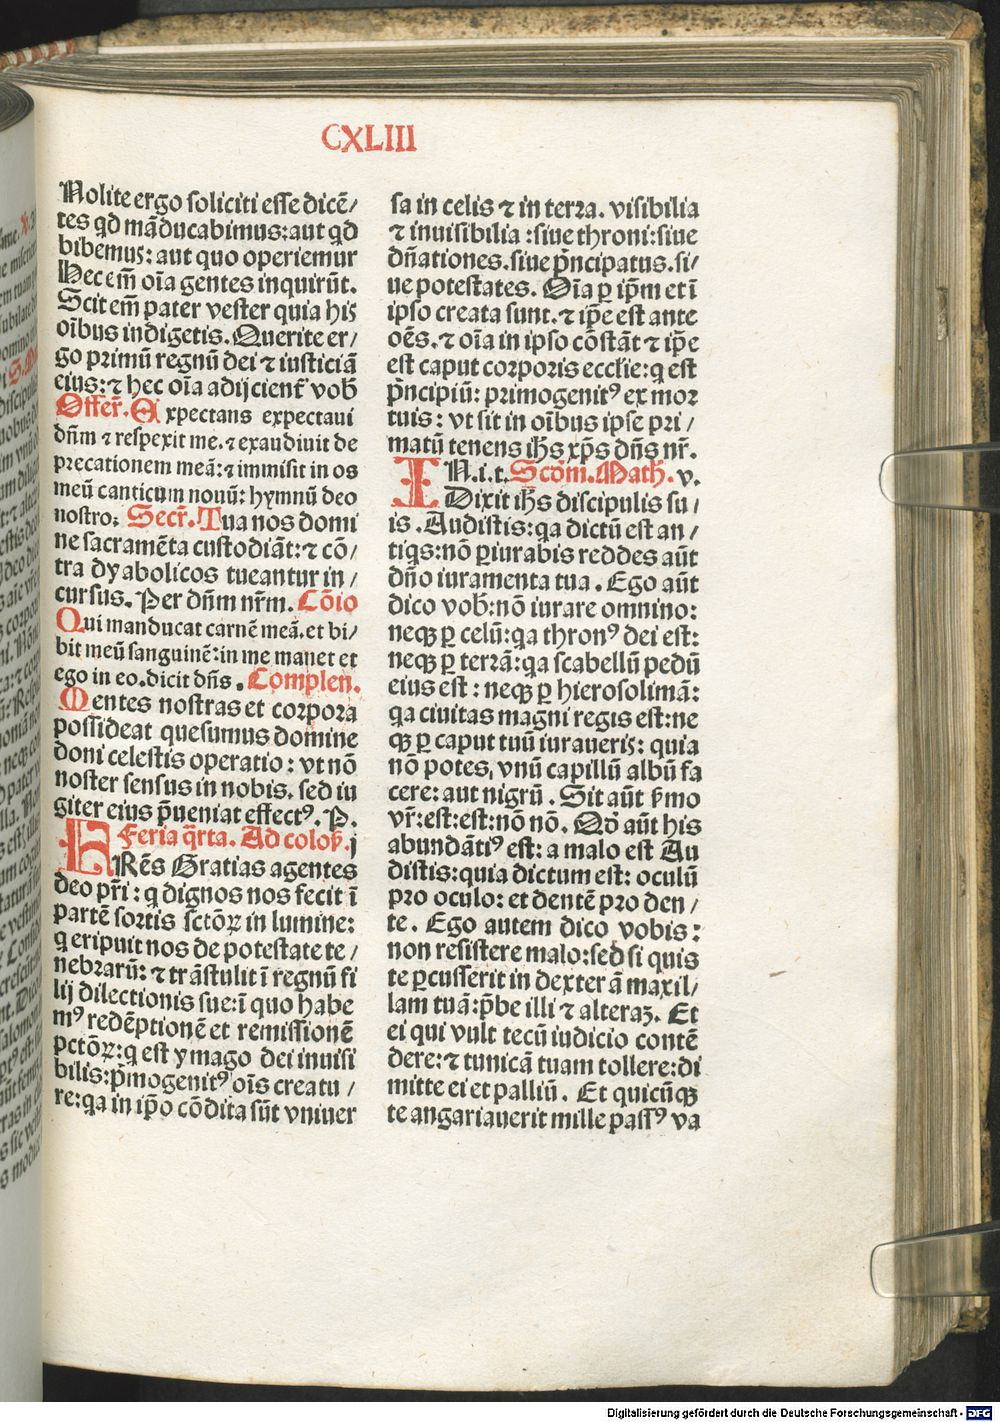 CXLIII
Nolite ergo soliciti esse dicē/
tes qd māducabimus: aut qd
bibemus: aut quo operiemur
Hec em̄ oīa gentes inquirūt.
Scit em̄ pater vester quia his
oībus indigetis. Querite er/
go primū regnū dei ⁊ iusticiā
eius: ⁊ hec oīa adijcient᷑ vob̄
Offer̄. Expectans expectaui
dn̄m ⁊ respexit me. ⁊ exaudiuit de
precationem meā: ⁊ immisit in os
meū canticum nouū: hymnū deo
nostro. Secr̄. Tua nos domi
ne sacramēta custodiāt: ⁊ cō/
tra dyabolicos tueantur in/
cursus. Per dn̄m nr̄m. Cōio
Qui manducat carnē meā. et bi/
bit meū sanguinē: in me manet et
ego in eo. dicit dn̄s. Complen.
Mentes nostras et corpora
possideat quesumus domine
doni celestis operatio: vt nō
noster sensus in nobis. sed iu
giter eius p̄ueniat effectꝰ. P.
Feria q̄rta. Ad coloꝭ. j
FRēs Gratias agentes
deo pr̄i: q dignos nos fecit ī
partē sortis sctōꝝ in lumine:
q eripuit nos de potestate te/
nebrarū: ⁊ trāstulit ī regnū fi
lij dilectionis sue: ī quo habe
mꝰ redēptionē et remissionē
pctōꝝ: q est ymago dei inuisi
bilis: p̄mogenitꝰ oīs creatu/
re: qa in ip̄o cōdita sūt vniuer
sa in celis ⁊ in terra. visibilia
⁊ inuisibilia: siue throni: siue
dn̄ationes. siue p̄ncipatus. si/
ue potestates. Oīa ꝑ ip̄m et ī
ipso creata sunt. ⁊ ip̄e est ante
oēs. ⁊ oīa in ipso cōstāt ⁊ ip̄e
est caput corporis ecclie: q est
p̄ncipiū: primogenitꝰ ex mor
tuis: vt sit in oībus ipse pri/
matū tenens ih̄s xp̄s dn̄s nr̄.
IN.i.t. Scōm. Math̄. v.
Dixit ih̄s discipulis su/
is. Audistis: qa dictū est an/
tiqs: nō ꝑiurabis reddes aūt
dn̄o iuramenta tua. Ego aūt
dico vob̄: nō iurare omnino:
neqꝫ ꝑ celū: qa thronꝰ dei est:
neqꝫ ꝑ terrā: qa scabellū pedū
eius est: neqꝫ ꝑ hierosolimā:
qa ciuitas magni regis est: ne
qꝫ ꝑ caput tuū iuraueris: quia
nō potes, vnū capillū albū fa
cere: aut nigrū. Sit aūt ẜmo
vr̄: est: est: nō nō. Qđ aūt his
abundātiꝰ est: a malo est Au
distis: quia dictum est: oculū
pro oculo: et dentē pro den/
te. Ego autem dico vobis:
non resistere malo: sed si quis
te ꝑcusserit in dexterā maxil/
lam tuā: p̄be illi ⁊ alteraꝫ. Et
ei qui vult tecū iudicio contē
dere: ⁊ tunicā tuam tollere: di
mitte ei et palliū. Et quicūqꝫ
te angariauerit mille passꝰ va
Digitalisierung gefördert durch die Deutsche Forschungsgemeinschaft - DFG